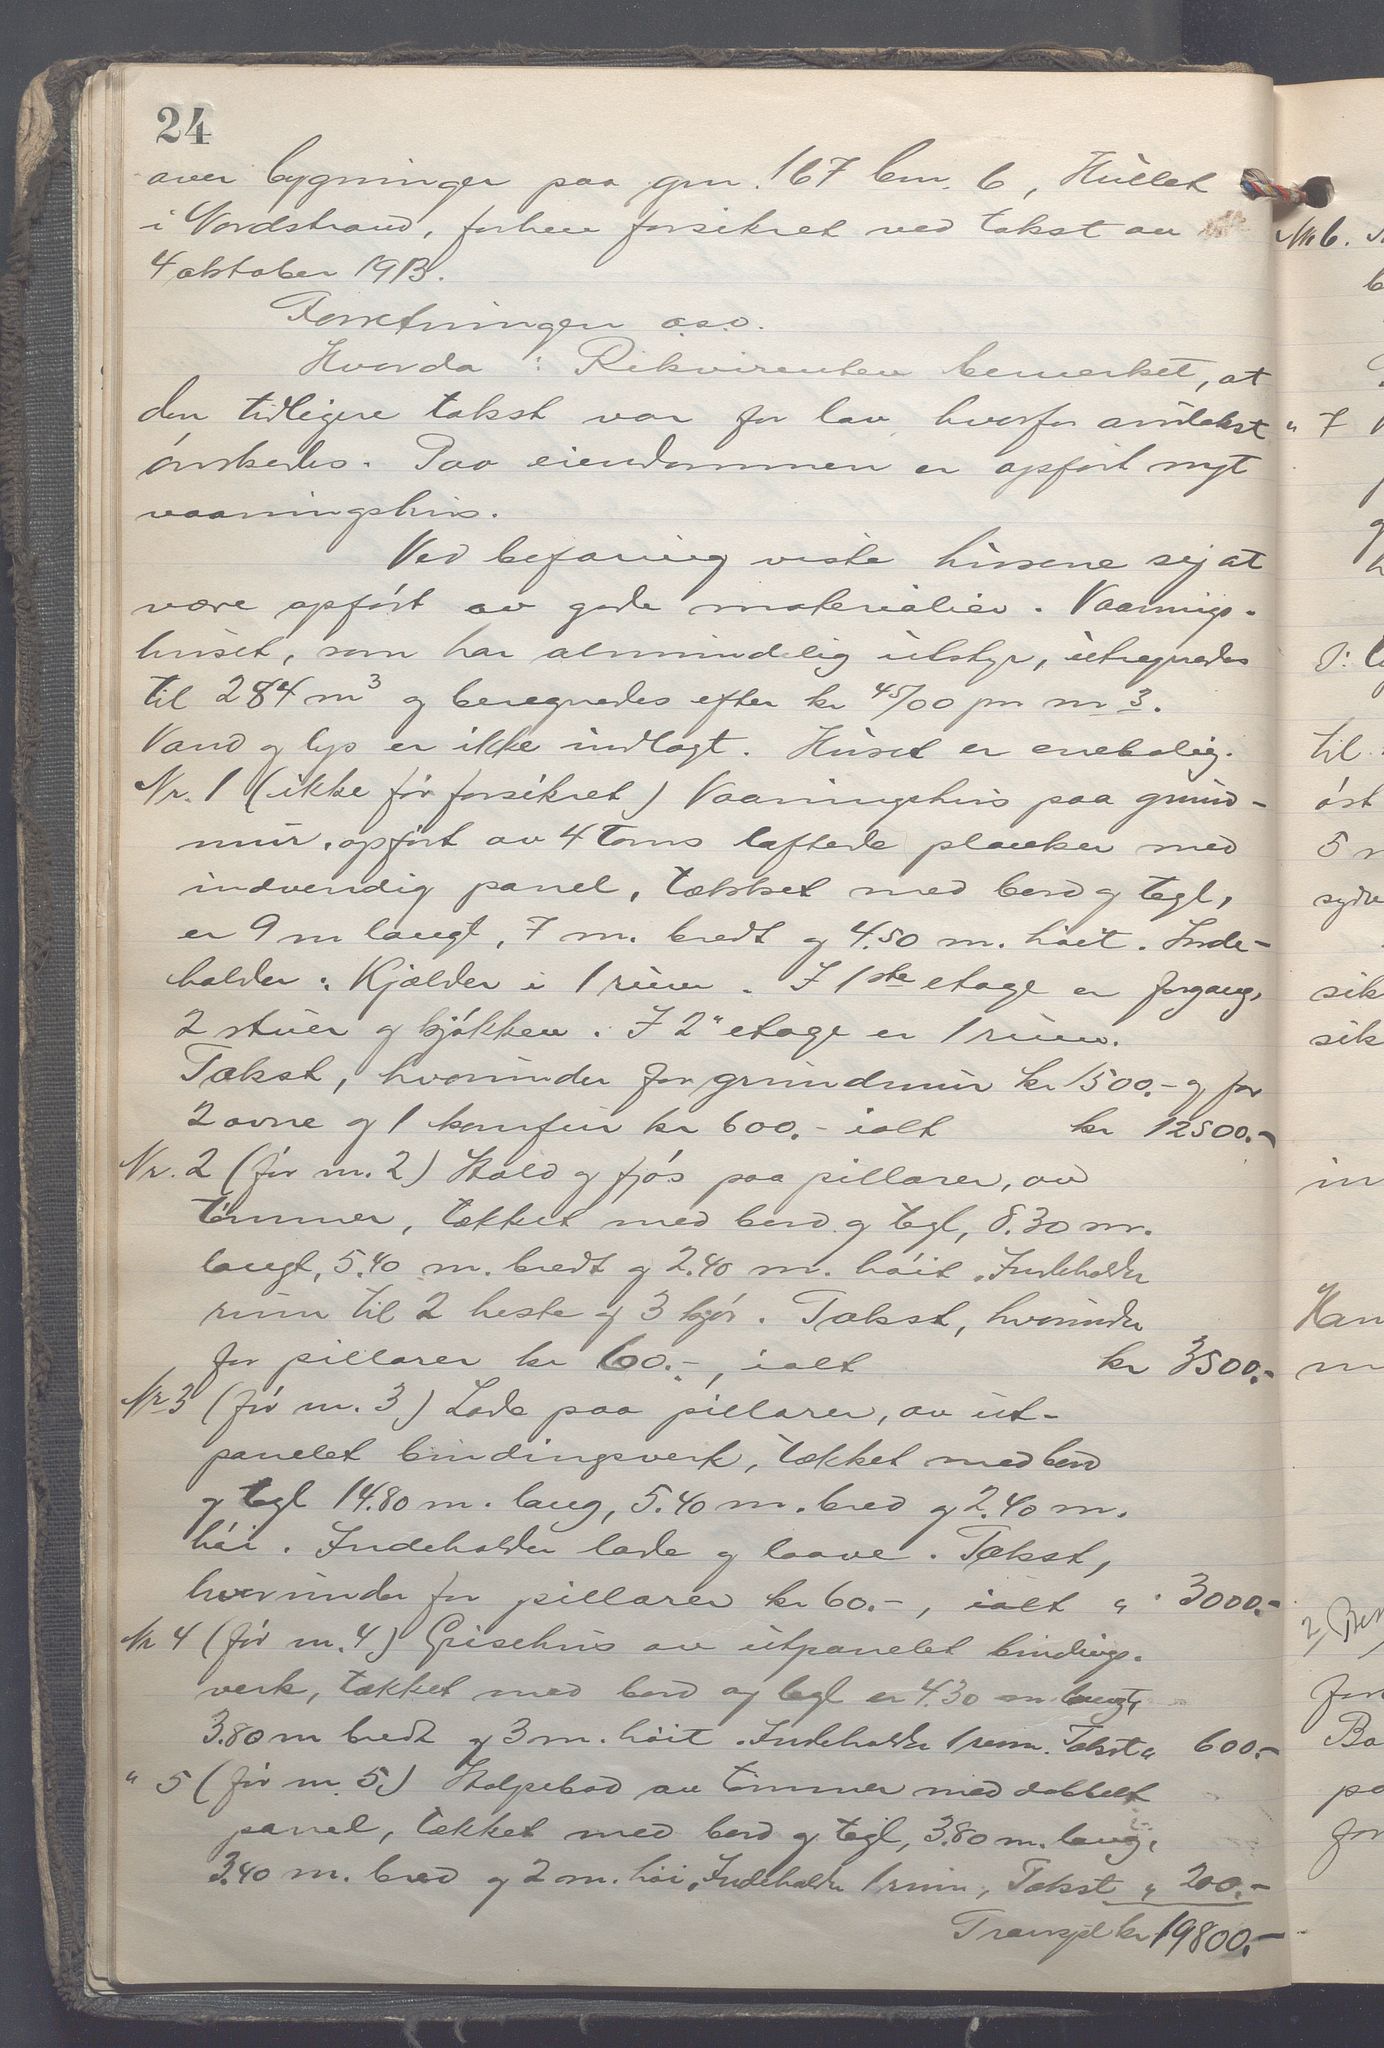 24
over bygninger paa gnr. 167 bnr. 6, Hullet
i Nordstrand, forhen forsikret ved takst av
4 oktober 1913.
Forretningen o.s.v.
Hvorda: Rekvirenten bemerket, at
den tidligere takst var for lav, hvorfor omtakst
ønskedes. Paa eiendommen er opført nyt
vaaningshus.
Ved befaring viste husene sig at
være opført av gode materialier. Vaanings-
huset, som har almindelig utstyr, utregnedes
til 284 m3 og beregnedes efter kr 45/00 pr m3.
Vand og lys er ikke indlagt. Huset er enebolig.
Nr. 1 (ikke før forsikret) Vaaningshus paa grund-
mur, opført av 4 toms laftede planker med
indvendig panel, tækket med bord og tegl,
er 9 m langt, 7 m. bredt og 4.50 m. høit. Inde-
holder: Kjælder i 1 rum. I 1ste etage er forgang,
2 stuer og kjøkken. I 2" etage er 1 rum.
Takst, hvorunder for grundmur kr 1500.- og for
2 ovne og 1 komfur kr 600.- ialt kr 12500.-
Nr. 2 (før nr. 2) Stald og fjøs paa pillarer, av
tømmer, tækket med bord og tegl, 8.30 m.
langt, 5.40 m. bredt og 2.40 m. høit. Indeholder
rum til 2 heste og 3 kjør. Takst, hvorunder
for pillarer kr 60.-, ialt kr 3500.-
Nr 3 (før nr. 3) Lade paa pillarer, av ut-
panelet bindingsverk, tækket med bord
og tegl 14.80 m. lang, 5.40 m. bred og 2.40 m.
høi. Indeholder lade og laave. Takst,
hvorunder for pillarer kr 60.-, ialt " 3000.-
Nr 4 (før nr. 4) Grisehus av utpanelet bindings-
verk, tækket med bord og tegl er 4.30 m langt,
3.80 m bredt og 3 m. høit. Indeholder 1 rum. Takst " 600.-
" 5 (før nr 5) Stolpebod av tømmer med dobbelt
panel, tækket med bord og tegl, 3.80 m. lang,
3.40 m. bred og 2 m. høi, Indeholder 1 rum, Takst " 200.-
Transpt kr 19800.-
Nr 6.
" 7
til
øst
5 m
sydv
sik
sik
in
Han
m
2,
for
Bo
po
for